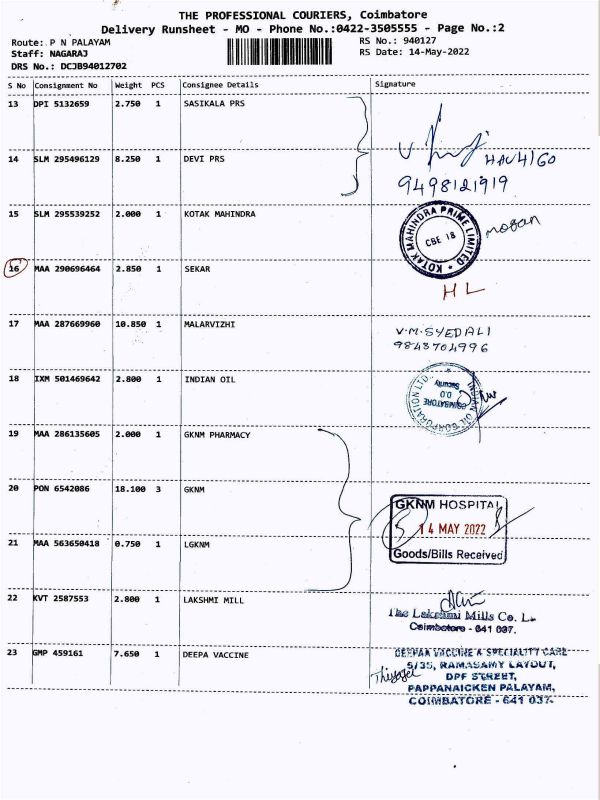 THE PROFESSIONAL COURIERS, Coimbatore
Delivery Runsheet - MO - Phone No.:0422-3505555 - Page No.:2
Route: P N PALAYAM RS No.: 940127
Staff: NAGARAJ RS Date: 14-May-2022
DRS No.: DCJB94012702
S No Consignment No Weight PCS Consignee Details Signature
13 DPI 5132659 2.750 1 SASIKALA PRS
14 SLM 295496129 8.250 1 DEVI PRS
9498121919
15 SLM 295539252 2.000 1 KOTAK MAHINDRA
KOTAK MAHINDRA PRIME LIMITED
CBE 18
mogan
16 MAA 290696464 2.850 1 SEKAR
HL
17 MAA 287669960 10.850 1 MALARVIZHI
V.M.SYEDALI
9843704996
18 IXM 501469642 2.800 1 INDIAN OIL
INDIAN OIL CORPORATION LTD.
COIMBATORE
D.O
Security
19 MAA 286135605 2.000 1 GKNM PHARMACY
20 PON 6542086 18.100 3 GKNM
GKNM HOSPITAL
14 MAY 2022
Goods/Bills Received
21 MAA 563650418 0.750 1 LGKNM
22 KVT 2587553 2.800 1 LAKSHMI MILL
The Lakshmi Mills Co. L
Coimbatore - 641 037.
23 GMP 459161 7.650 1 DEEPA VACCINE
DEEPAK VACCINE & SPECIALITY CARE
5/35, RAMASAMY LAYOUT,
DPF STREET,
PAPPANAICKEN PALAYAM,
COIMBATORE - 641 037.